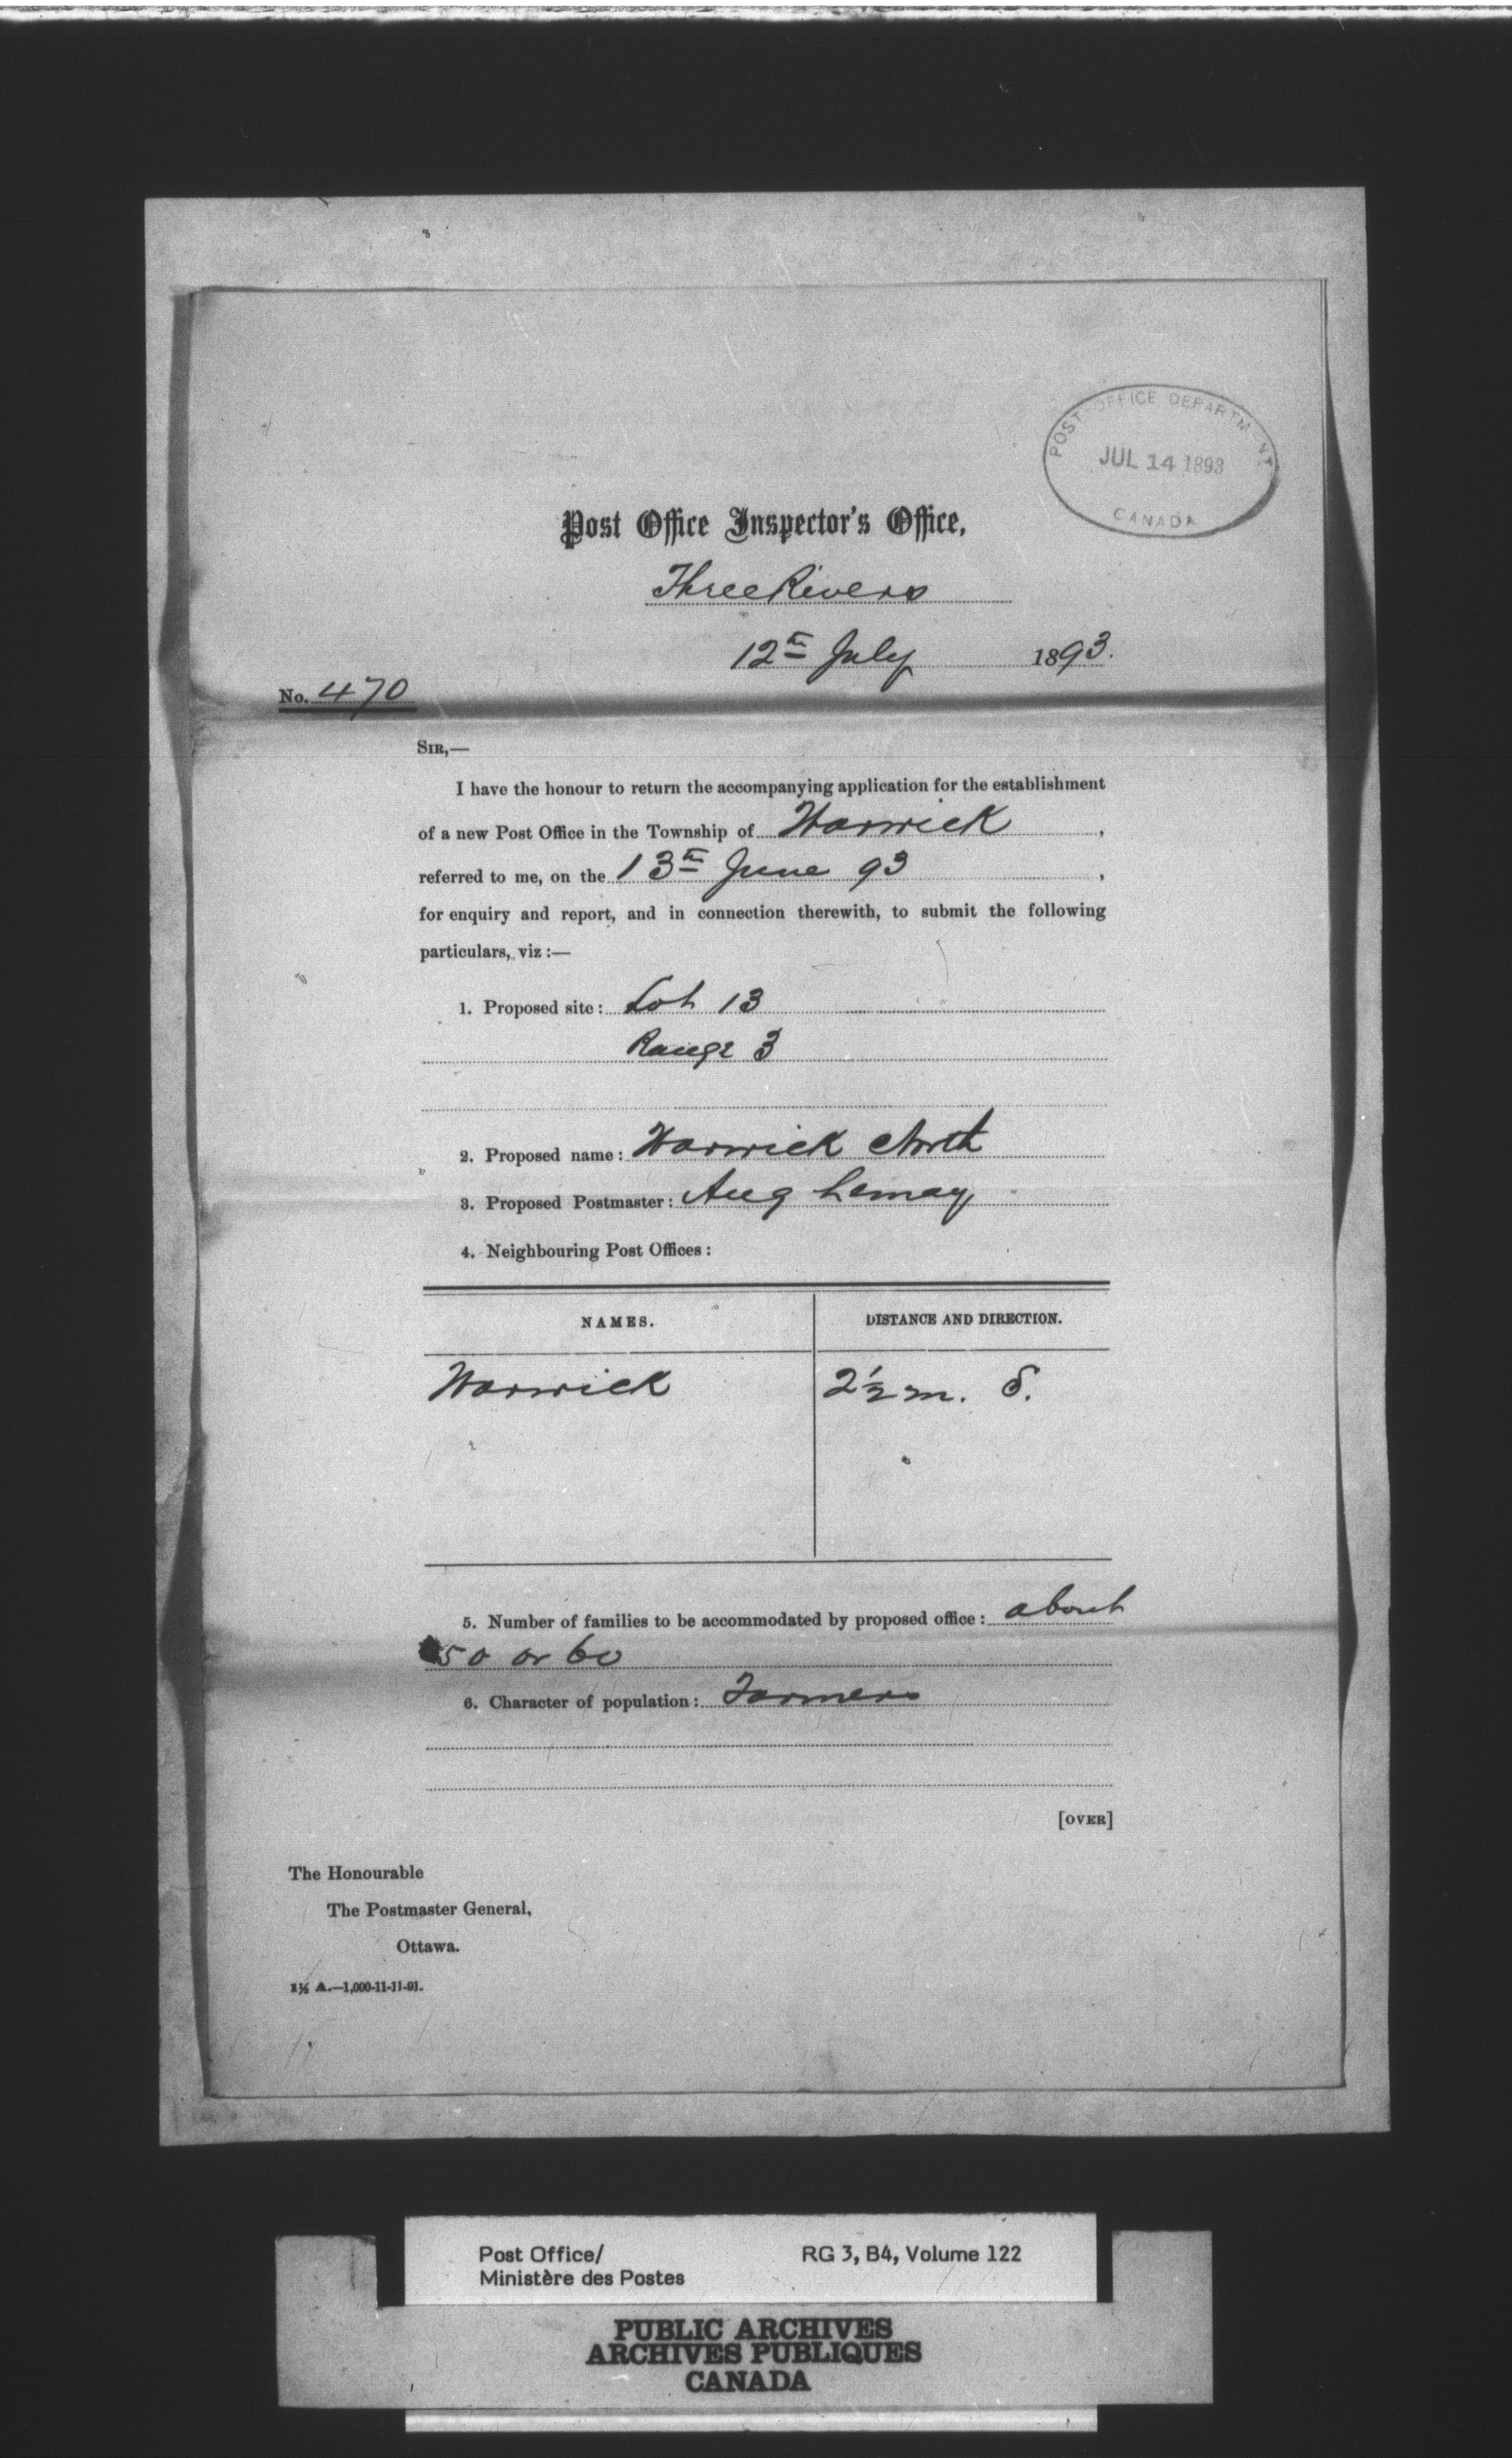 POST OFFICE DEPARTMENT
JUL 14 1893
CANADA
Post Office Inspector's Office,
Three Rivers
12th July 1893.
No. 470
SIR,—
I have the honour to return the accompanying application for the establishment
of a new Post Office in the Township of Warwick,
referred to me, on the 13th June 93,
for enquiry and report, and in connection therewith, to submit the following
particulars, viz :—
1. Proposed site: Lot 13
Range 3
2. Proposed name: Warwick North
3. Proposed Postmaster: Aug Lemay
4. Neighbouring Post Offices:
NAMES. DISTANCE AND DIRECTION.
Warwick 2½ m. S.
5. Number of families to be accommodated by proposed office: about
50 or 60
6. Character of population: Farmers
[OVER]
The Honourable
The Postmaster General,
Ottawa.
1½ A.—1,000-11-11-91.
Post Office/ RG 3, B4, Volume 122
Ministère des Postes
PUBLIC ARCHIVES
ARCHIVES PUBLIQUES
CANADA